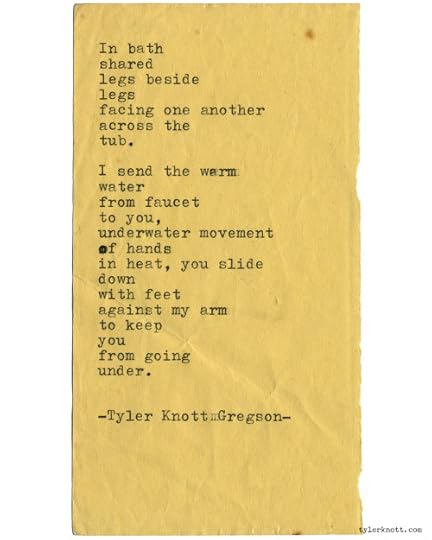 In bath
shared
legs beside
legs
facing one another
across the
tub.
I send the warm
water
from faucet
to you,
underwater movement
of hands
in heat, you slide
down
with feet
against my arm
to keep
you
from going
under.
-Tyler Knott Gregson-
tylerknott.com